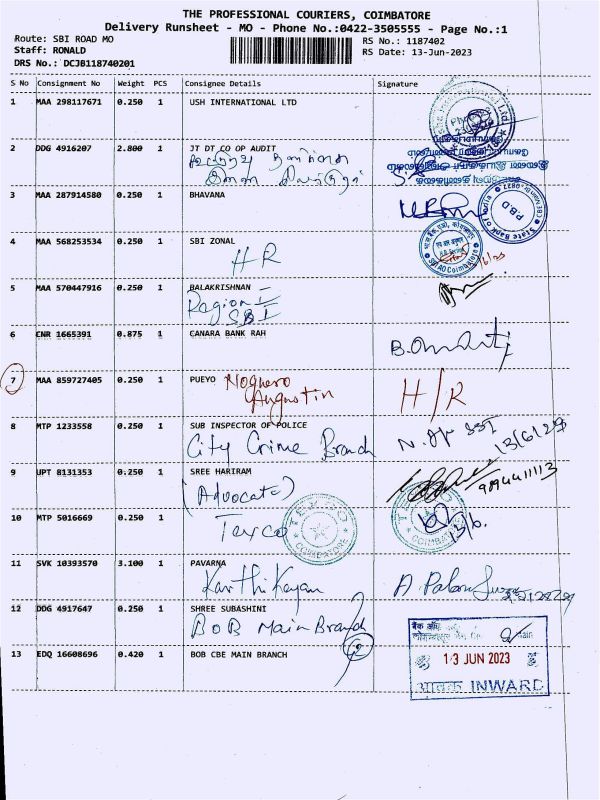 THE PROFESSIONAL COURIERS, COIMBATORE
Delivery Runsheet - MO - Phone No.:0422-3505555 - Page No.:1
Route: SBI ROAD MO RS No.: 1187402
Staff: RONALD RS Date: 13-Jun-2023
DRS No.: DCJB118740201
S No Consignment No Weight PCS Consignee Details Signature
1 MAA 298117671 0.250 1 USH INTERNATIONAL LTD
2 DDG 4916207 2.800 1 JT DT CO OP AUDIT
3 MAA 287914580 0.250 1 BHAVANA
State Bank of India
P.B.D
4 MAA 568253534 0.250 1 SBI ZONAL
HR
SBI AO Coimbatore
5 MAA 570447916 0.250 1 BALAKRISHNAN
Region
SBI
6 CNR 1665391 0.875 1 CANARA BANK RAH
7 MAA 859727405 0.250 1 PUEYO Noguero
Augustin H/R
8 MTP 1233558 0.250 1 SUB INSPECTOR OF POLICE
City Crime Branch
9 UPT 8131353 0.250 1 SREE HARIRAM
(Advocate)
10 MTP 5016669 0.250 1
Texco
TEXCO COIMBATORE
13/6.
11 SVK 10393570 3.100 1 PAVARNA
Karthikeyan
12 DDG 4917647 0.250 1 SHREE SUBASHINI
BOB Main Branch
13 EDQ 16608696 0.420 1 BOB CBE MAIN BRANCH
13 JUN 2023
आवक INWARD